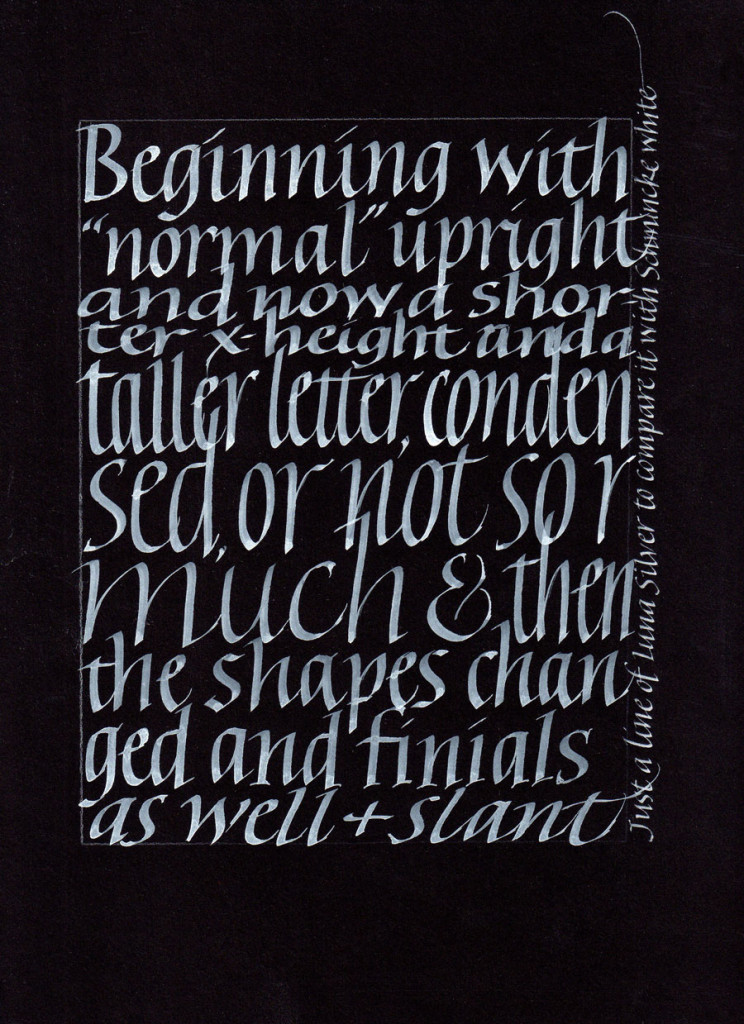 Beginning with
“normal” upright
and now a shor-
ter x-height and a
taller letter, conden
sed, or not so r
much & then
the shapes chan
ged and finials
as well + slant
Just a line of Luna Silver to compare it with Schmincke white